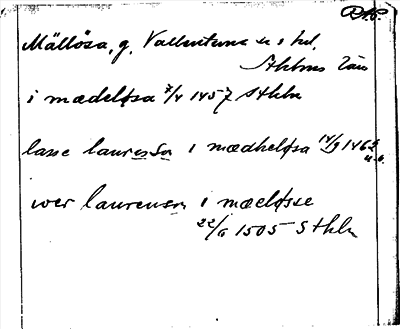 Mällösa, g. Vallentuna sn o hd.
Sthlms län
i mædeløsa 7/4 1457 Sthlm
lasse laurensson i mædheløsa 14/9 1465
u.b.
wer laurensson i mæløsse
22/6 1505 Sthlm